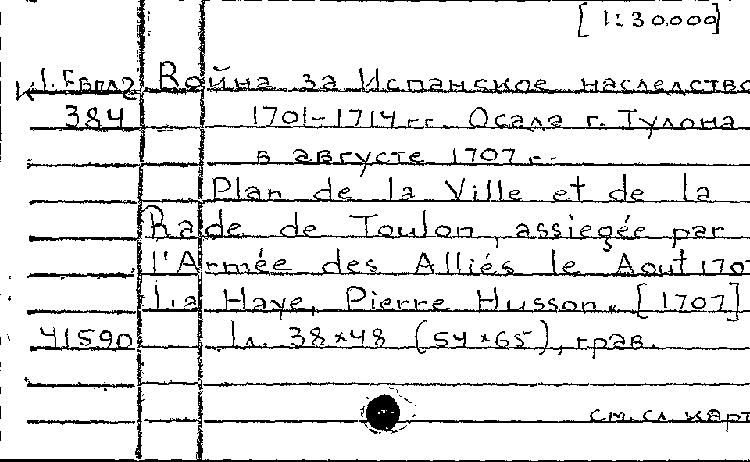 [1:30.000]
К 1. Европа Война за Испанское наследство
384 1701-1714 гг. Осада г. Тулона
в августе 1707 г.
Plan de la Ville et de la
Rade de Toulon, assiegée par
l'Armée des Alliés le Aout 1707
La Haye, Pierre Husson. [1707]
41590 1 л. 38×48 (54×65), грав.
см. сл. карт